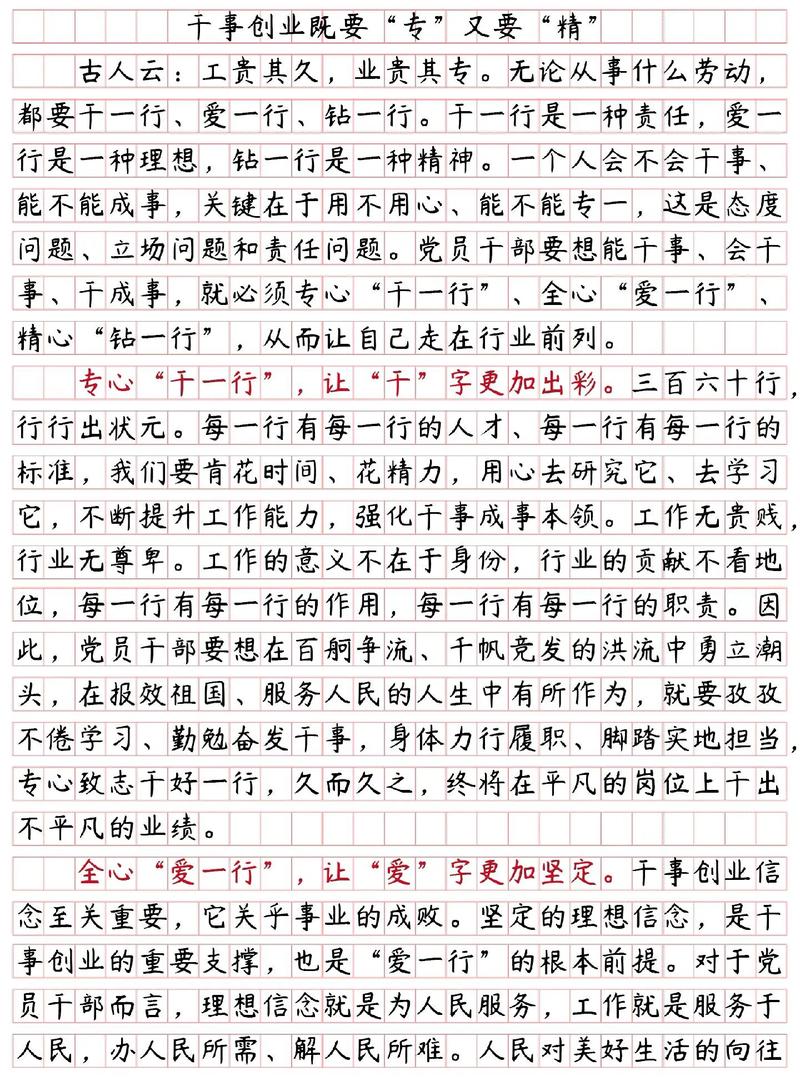 干事创业既要“专”又要“精”
古人云：工贵其久，业贵其专。无论从事什么劳动，
都要干一行、爱一行、钻一行。干一行是一种责任，爱一
行是一种理想，钻一行是一种精神。一个人会不会干事、
能不能成事，关键在于用不用心、能不能专一，这是态度
问题、立场问题和责任问题。党员干部要想能干事、会干
事、干成事，就必须专心“干一行”、全心“爱一行”、
精心“钻一行”，从而让自己走在行业前列。
专心“干一行”，让“干”字更加出彩。三百六十行，
行行出状元。每一行有每一行的人才、每一行有每一行的
标准，我们要肯花时间、花精力，用心去研究它、去学习
它，不断提升工作能力，强化干事成事本领。工作无贵贱，
行业无尊卑。工作的意义不在于身份，行业的贡献不看地
位，每一行有每一行的作用，每一行有每一行的职责。因
此，党员干部要想在百舸争流、千帆竞发的洪流中勇立潮
头，在报效祖国、服务人民的人生中有所作为，就要孜孜
不倦学习、勤勉奋发干事，身体力行履职、脚踏实地担当，
专心致志干好一行，久而久之，终将在平凡的岗位上干出
不平凡的业绩。
全心“爱一行”，让“爱”字更加坚定。干事创业信
念至关重要，它关乎事业的成败。坚定的理想信念，是干
事创业的重要支撑，也是“爱一行”的根本前提。对于党
员干部而言，理想信念就是为人民服务，工作就是服务于
人民，办人民所需、解人民所难。人民对美好生活的向往